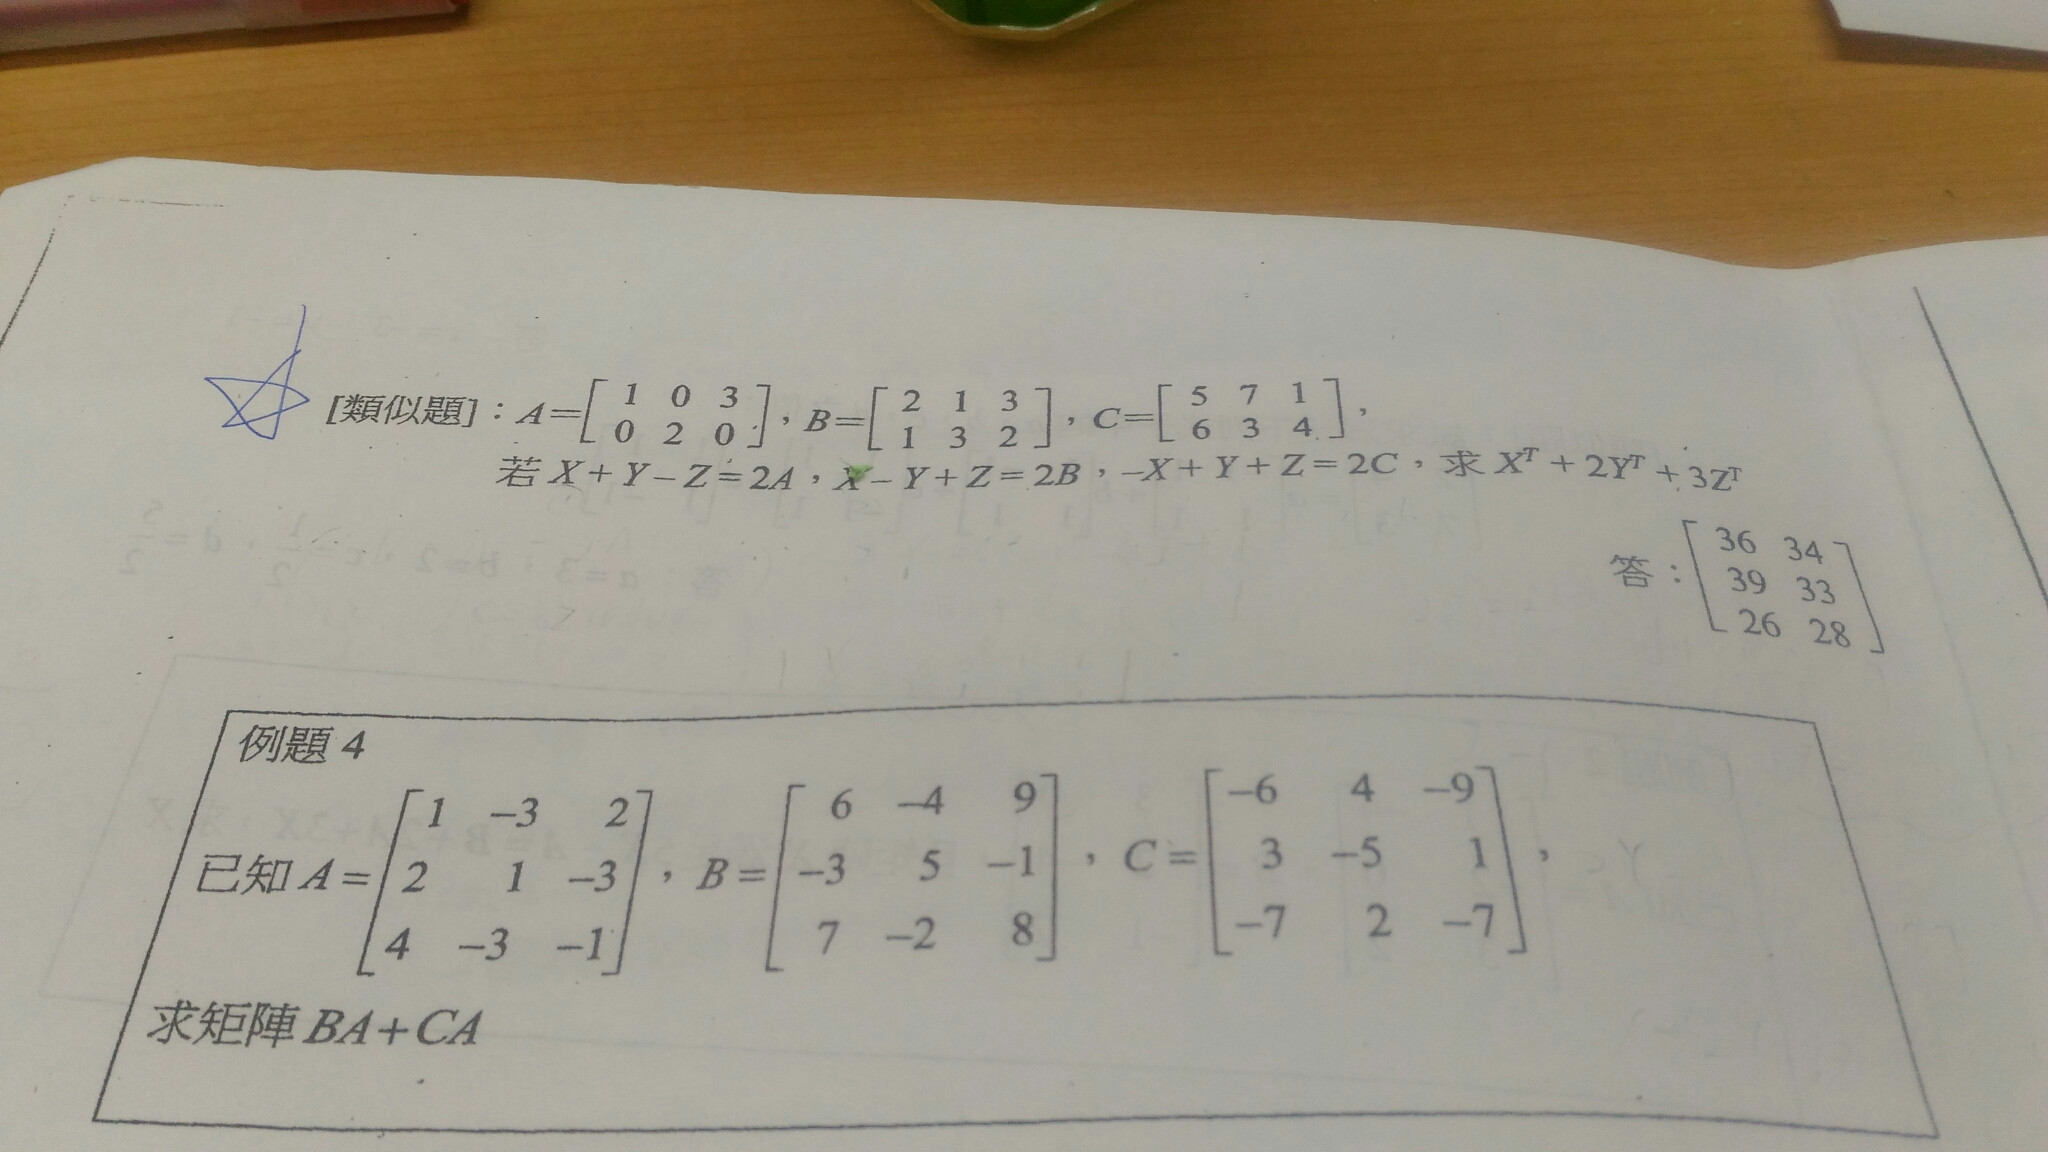 [類似題]：A=[1 0 3; 0 2 0]，B=[2 1 3; 1 3 2]，C=[5 7 1; 6 3 4]，
若 X+Y−Z=2A，X−Y+Z=2B，−X+Y+Z=2C，求 Xᵀ+2Yᵀ+3Zᵀ
答：[36 34; 39 33; 26 28]
例題 4
已知 A=[1 −3 2; 2 1 −3; 4 −3 −1]，B=[6 −4 9; −3 5 −1; 7 −2 8]，C=[−6 4 −9; 3 −5 1; −7 2 −7]，
求矩陣 BA+CA